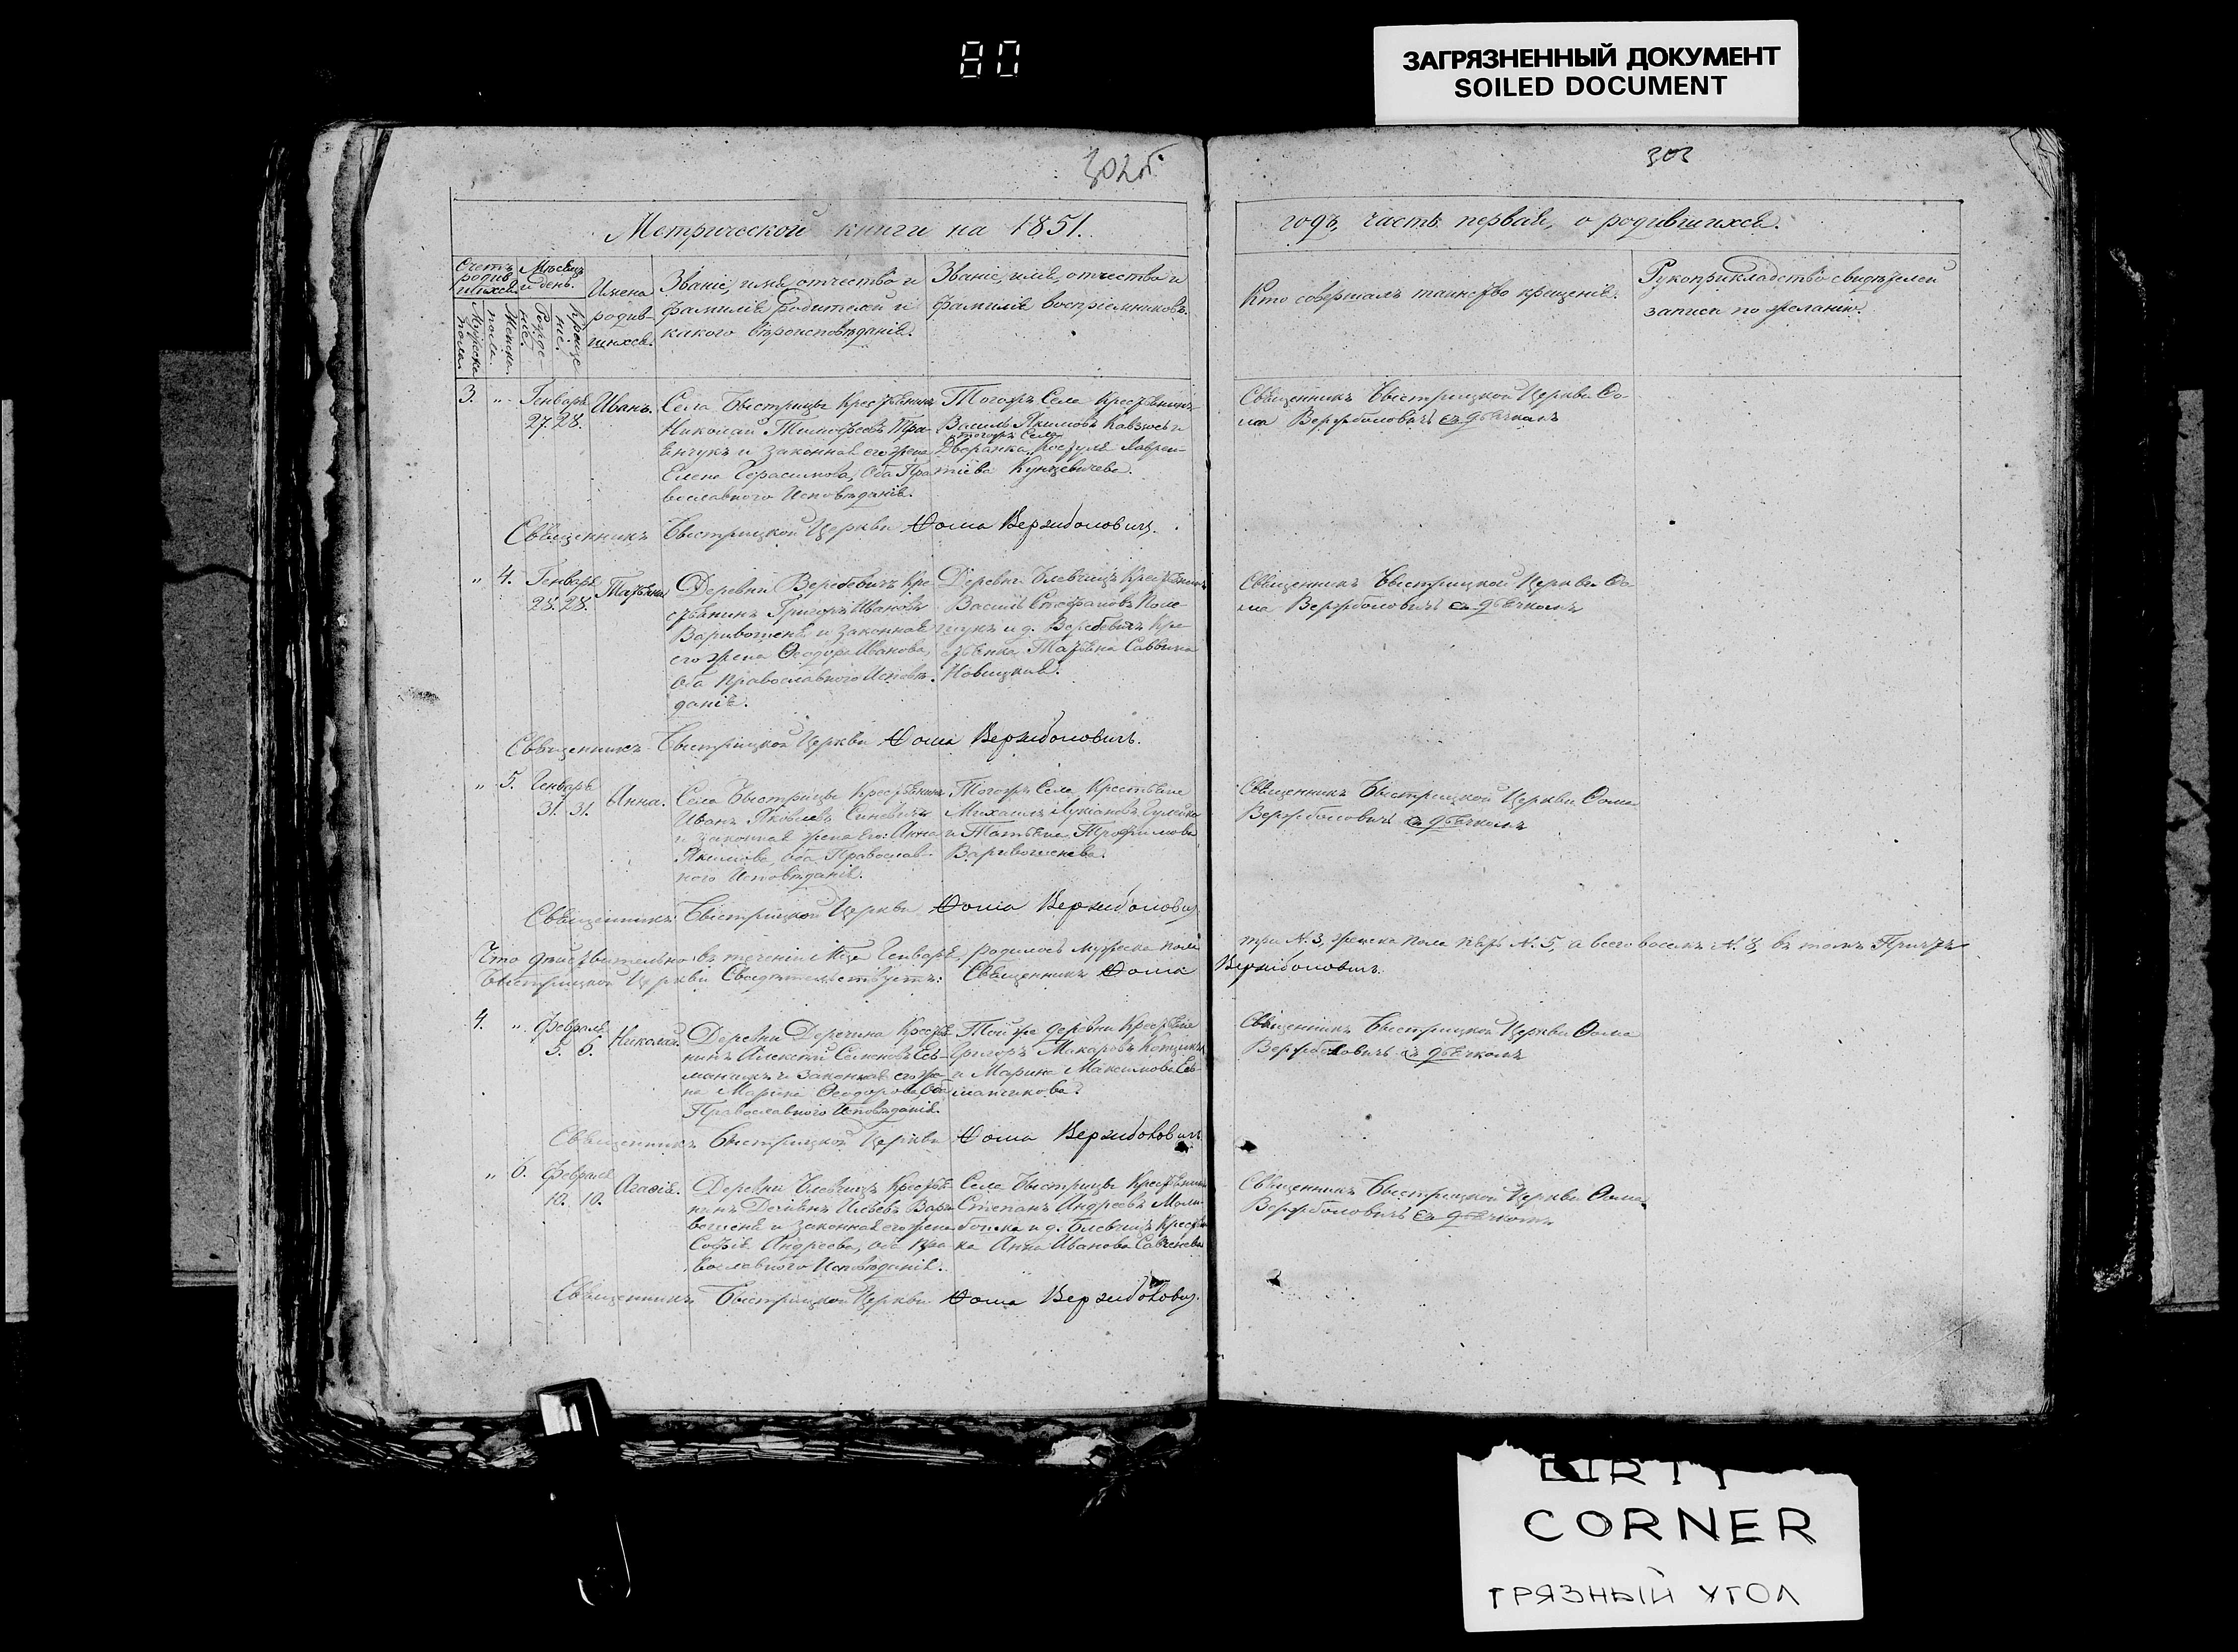 80
ЗАГРЯЗНЕННЫЙ ДОКУМЕНТ
SOILED DOCUMENT
302б.
303
Метрической книги на 1851.
годъ, часть первая, о родившихся.
Счетъ родив-шихся.
Мужска пола.
Женска пола.
Мѣсяцъ и день.
Рожде-ніе.
Креще-ніе.
Имена
родив-
шихся.
Званіе, имя, отчество и
фамилія родителей и
какого вѣроисповѣданія.
Званіе, имя, отчество и
фамилія воспріемниковъ.
Кто совершалъ таинство крещенія.
Рукоприкладство свидѣтелей
записи по желанію.
3. „ Генварь 27. 28. Иванъ.
Села Быстрицы Крестьянинъ
Николай Тимофеевъ
и законная его жена
Елена Герасимова, Оба Пра-
вославного Исповѣданія.
Тогожъ Села Крестьянинъ
Василь Якимовъ и
тогожъ Села
Дворянка Лаврен-
тіева Кунцевичева.
Священникъ Быстрицкой Церкви Ѳо-
ма Вержболовичъ съ дьячкомъ
Священникъ Быстрицкой Церкви Ѳома Вержболовичъ.
„ 4. Генварь 28. 28. Татьяна
Деревни Веребевичъ Кре-
стьянинъ Григорій Ивановъ
и законная
его жена Ѳеодора Иванова,
Оба Православного Исповѣ-
данія.
Деревни Блевчицъ Крестьянинъ
Василь Стефановъ Поле-
щукъ и д. Веребевичъ Кре-
стьянка Татьяна Саввина
Новицкая.
Священникъ Быстрицкой Церкви Ѳо-
ма Вержболовичъ съ дьячкомъ
Священникъ Быстрицкой Церкви Ѳома Вержболовичъ.
„ 5. Генварь 31. 31. Анна.
Села Быстрицы Крестьянинъ
Иванъ Яковлевъ
и законная жена его: Анна
Якимова, оба Православ-
ного Исповѣданія.
Тогожъ Села Крестьяне
Михаилъ Лукіановъ
и Татьяна Трофимова
Варивошенева.
Священникъ Быстрицкой Церкви Ѳома
Вержболовичъ съ дьячкомъ
Священникъ Быстрицкой Церкви Ѳома Вержболовичъ
Что дѣйствительно въ теченіи Мца Генваря, родилось мужеска пола
три N. 3, женска пола пять N. 5, а всего восемь N. 8, въ томъ Причтъ
Быстрицкой Церкви Свидетельствуетъ: Священникъ Ѳома
Вержболовичъ.
4. „ Февраль 5. 6. Николай.
Деревни Деречина Крестья-
нинъ Алексій Семеновъ
и законная его же-
на Марина Ѳеодорова Оба
Православного Исповѣданія.
Той же деревни Крестьяне
Григоръ Макаровъ
и Марина Максимова
Священникъ Быстрицкой Церкви Ѳома
Вержболовичъ съ дьячкомъ
Священникъ Быстрицкой Церкви Ѳома Вержболовичъ
„ 6. Февраль 10. 10. Агафія.
Деревни Блевчицъ Крестья-
нинъ Ильевъ Вари-
вошеня и законная его жена
Софія Андреева, оба Пра-
вославного Исповѣданія.
Села Быстрицы Крестьянинъ
Степанъ Андреевъ
и д. Блевчицъ Крестьян-
ка Анна Иванова
Священникъ Быстрицкой Церкви Ѳома
Вержболовичъ съ дьячкомъ
Священникъ Быстрицкой Церкви Ѳома Вержболовичъ.
DIRTY
CORNER
ГРЯЗНЫЙ УГОЛ